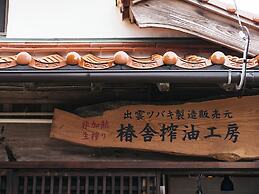 出雲ツバキ製造販売元
非加熱
生搾り
椿舎搾油工房